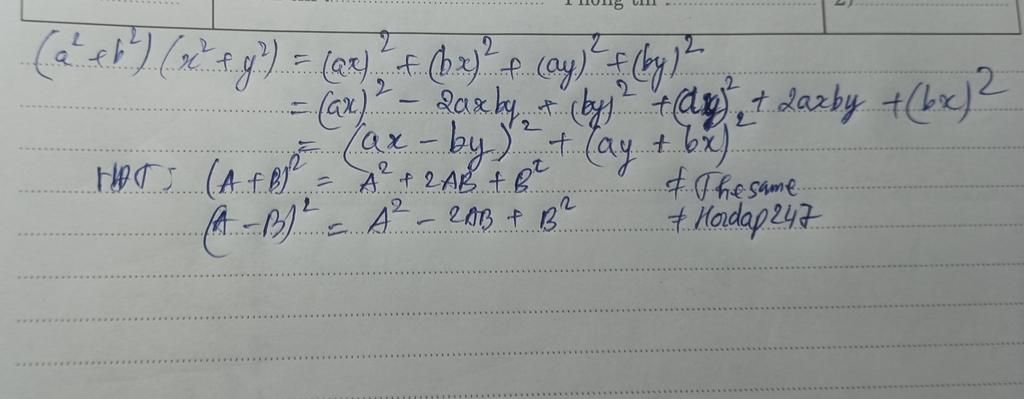 Thông tin
2)
(a² + b²) (x² + y²) = (ax)² + (bx)² + (ay)² + (by)²
= (ax)² - 2axby + (by)² + (ay)² + 2axby + (bx)²
= (ax - by)² + (ay + bx)²
HĐT: (A + B)² = A² + 2AB + B² # Thesame
(A - B)² = A² - 2AB + B² # Hoidap247